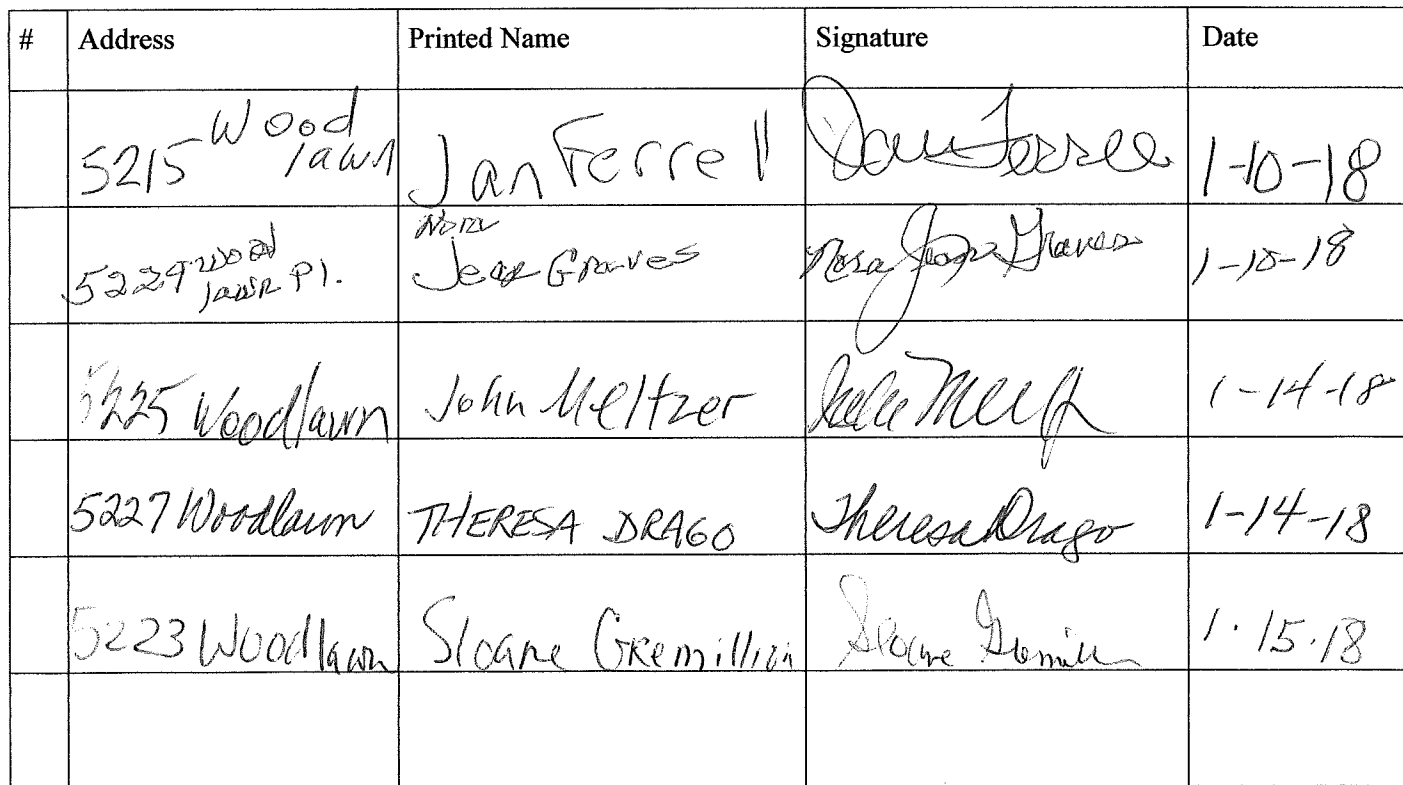 # Address Printed Name Signature Date
5215 Woodlawn Jan Ferrell Jan Ferrell 1-10-18
5229 Woodlawn Pl. Nora Jean Graves Nora Jean Graves 1-10-18
5225 Woodlawn John Meltzer 1-14-18
5227 Woodlawn THERESA DRAGO Theresa Drago 1-14-18
5223 Woodlawn Sloane Gremillion Sloane 1.15.18